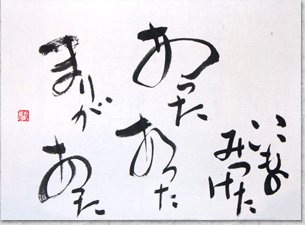 みつけた
あった
あった
まりが
あった